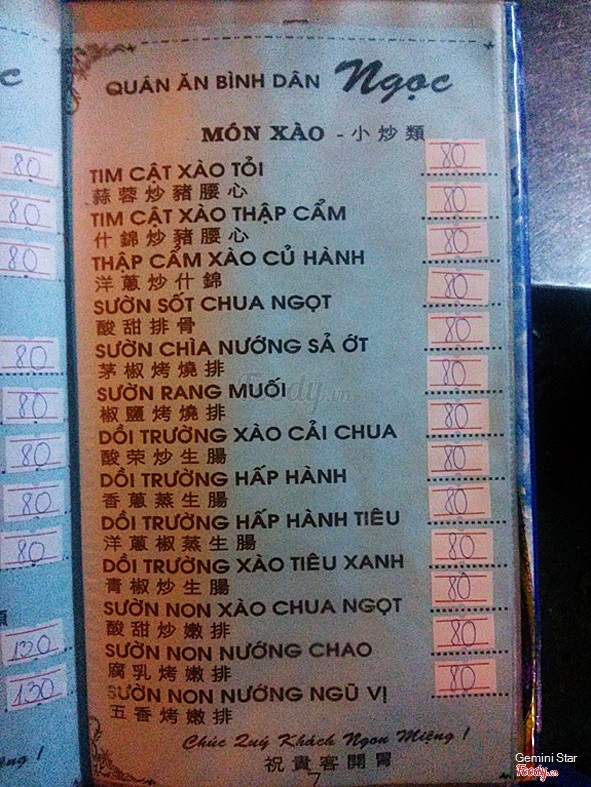 c
QUÁN ĂN BÌNH DÂN Ngọc
MÓN XÀO - 小炒類
TIM CẬT XÀO TỎI 80
蒜蓉炒豬腰心
TIM CẬT XÀO THẬP CẨM 80
什錦炒豬腰心
THẬP CẨM XÀO CỦ HÀNH 80
洋蔥炒什錦
SƯỜN SỐT CHUA NGỌT 80
酸甜排骨
SƯỜN CHÌA NƯỚNG SẢ ỚT 80
茅椒烤燒排
SƯỜN RANG MUỐI 80
椒鹽烤燒排
DỒI TRƯỜNG XÀO CẢI CHUA 80
酸荣炒生腸
DỒI TRƯỜNG HẤP HÀNH 80
香蔥蒸生腸
DỒI TRƯỜNG HẤP HÀNH TIÊU 80
洋蔥椒蒸生腸
DỒI TRƯỜNG XÀO TIÊU XANH 80
青椒炒生腸
SƯỜN NON XÀO CHUA NGỌT 80
酸甜炒嫩排
SƯỜN NON NƯỚNG CHAO 80
腐乳烤嫩排
SƯỜN NON NƯỚNG NGŨ VỊ 80
五香烤嫩排
Chúc Quý Khách Ngon Miệng !
祝貴客開胃
7
80
80
80
80
80
80
80
80
120
130
ng !
Foody.vn
Gemini Star
Foody.vn